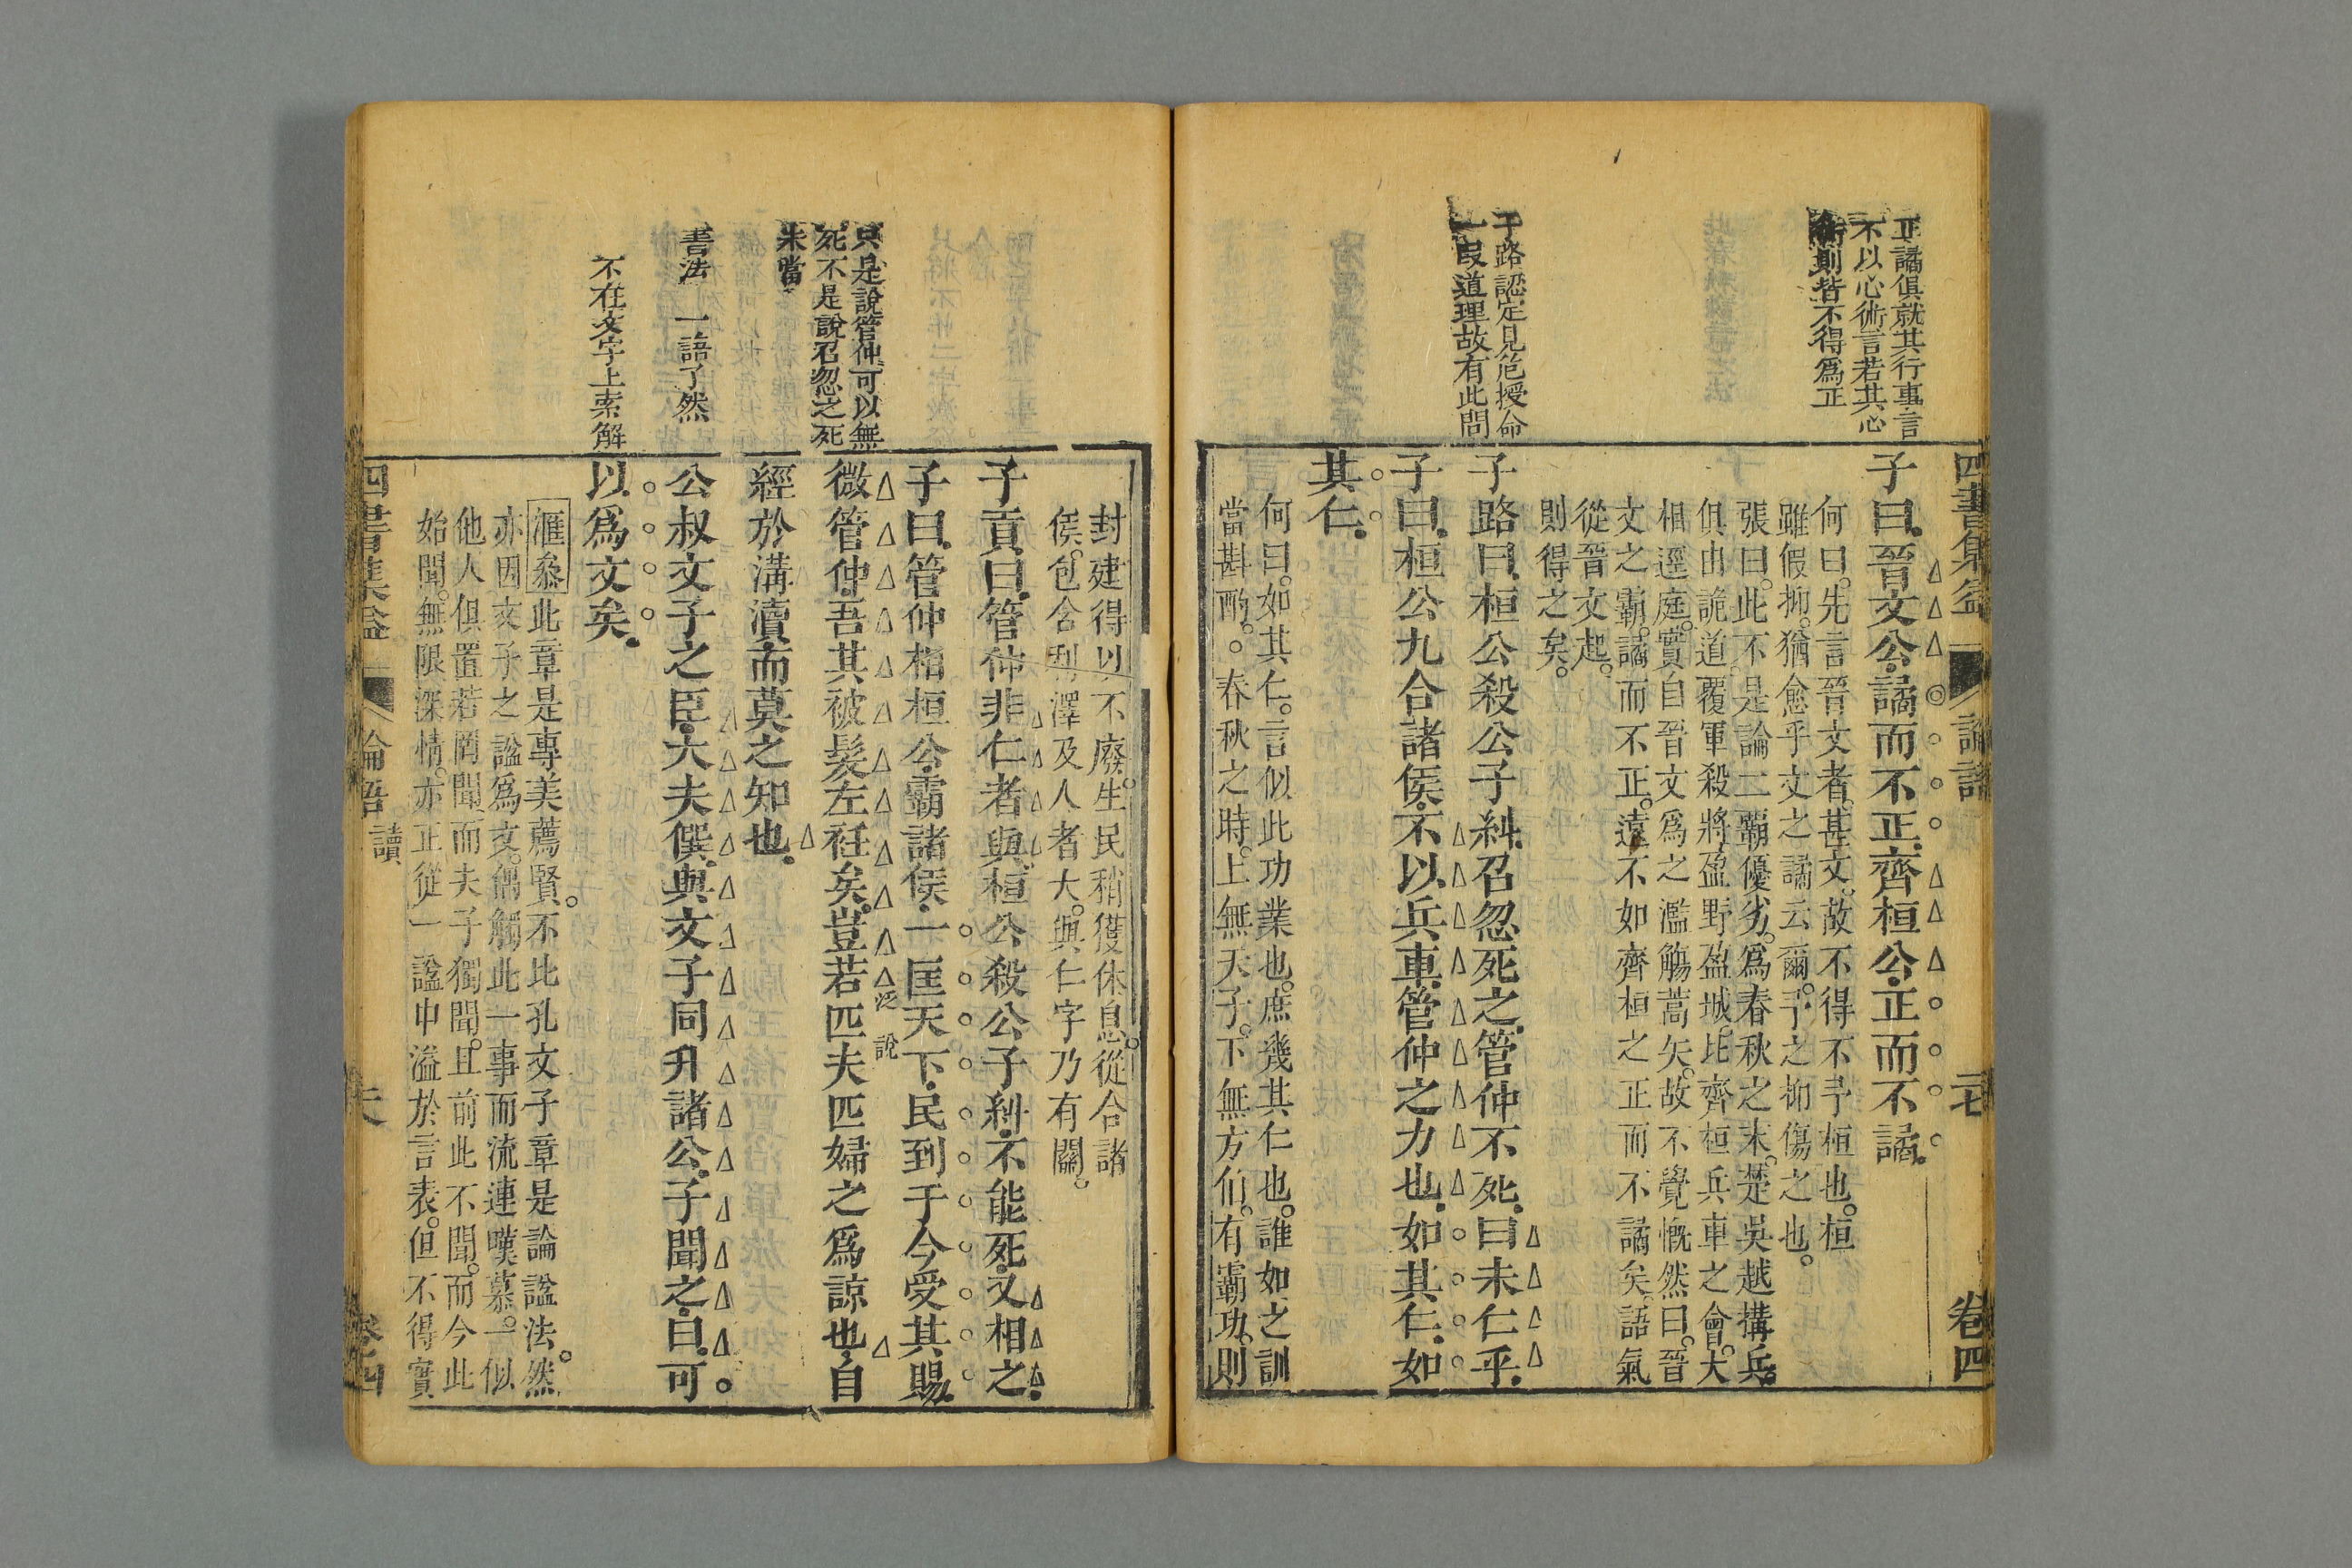 正譎俱就其行事言
不以心術言若其心
術則皆不得爲正
子路認定見危授命
一叚道理故有此問
四書集益
論語
卷四
子曰晉文公譎而不正齊桓公正而不譎
何曰先言晉文者甚文故不得不予桓也桓
雖假抑猶愈乎文之譎云爾予之抑傷之也
張曰此不是論二霸優劣爲春秋之末楚吳越搆兵
俱由詭道覆軍殺將盈野盈城比齊桓兵車之會大
相逕庭實自晉文爲之濫觴蒿矢故不覺慨然曰晉
文之霸譎而不正遠不如齊桓之正而不譎矣語氣
從晉文起
則得之矣
子路曰桓公殺公子糾召忽死之管仲不死曰未仁乎
子曰桓公九合諸侯不以兵車管仲之力也如其仁如
其仁
何曰如其仁言似此功業也庶幾其仁也誰如之訓
當斟酌春秋之時上無天子下無方伯有霸功則
只是說管仲可以無
死不是說召忽之死
未當
書法 一語了然
不在文字上索解
封建得以不廢生民稍獲休息從合諸
侯包含利澤及人者大與仁字乃有關
子貢曰管仲非仁者與桓公殺公子糾不能死又相之
子曰管仲相桓公霸諸侯一匡天下民到于今受其賜
微管仲吾其被髮左衽矣豈若匹夫匹婦之爲諒也自
泛說
經於溝瀆而莫之知也
公叔文子之臣大夫僎與文子同升諸公子聞之曰可
以爲文矣
滙叅此章是專美薦賢不比孔文子章是論諡法然
亦因文子之諡爲文偶觸此一事而流連嘆慕一似
他人俱置若罔聞而夫子獨聞且前此不聞而今此
始聞無限深情亦正從一諡中溢於言表但不得實
讀
四書集益
論語
卷四